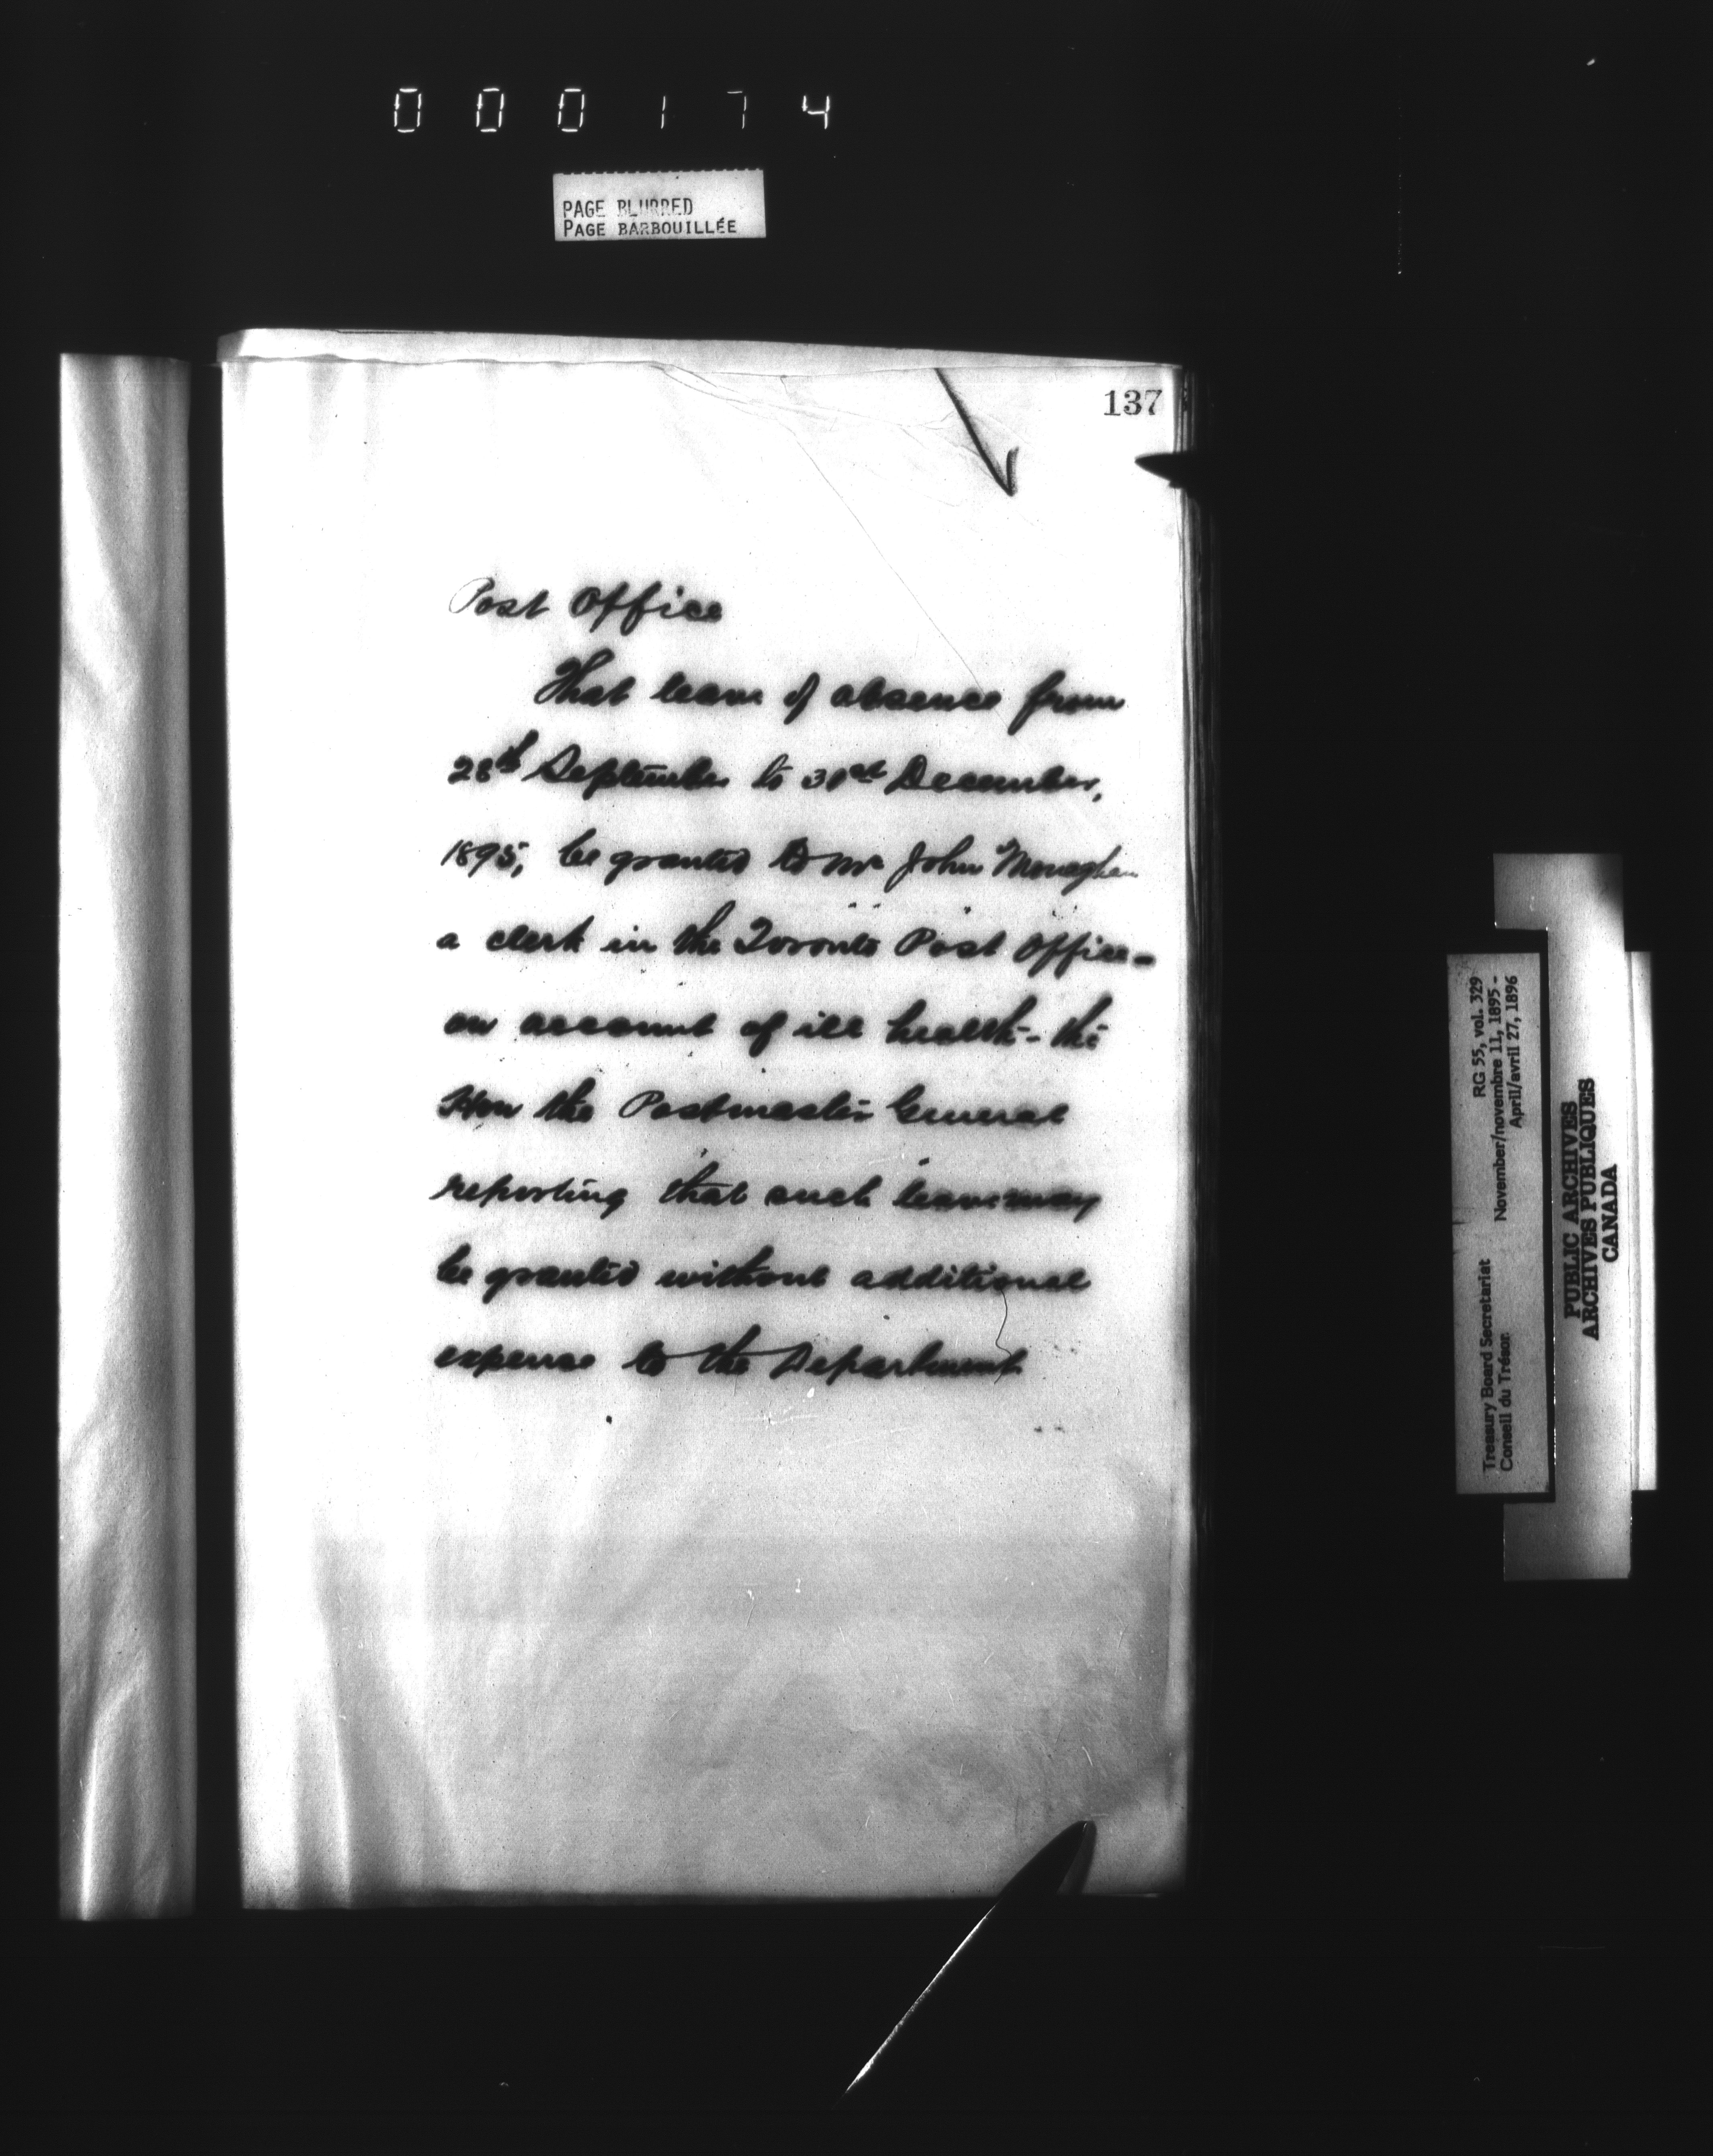 000174
PAGE BLURRED
PAGE BARBOUILLÉE
137
Post Office
That leave of absence from
28th September to 31st December,
1895, be granted to Mr John Monaghan
a clerk in the Toronto Post Office -
on account of ill health - the
Hon the Postmaster General
reporting that such leave may
be granted without additional
expense to the Department
Treasury Board Secretariat RG 55, vol. 329
Conseil du Trésor November/novembre 11, 1895 -
April/avril 27, 1896
PUBLIC ARCHIVES
ARCHIVES PUBLIQUES
CANADA